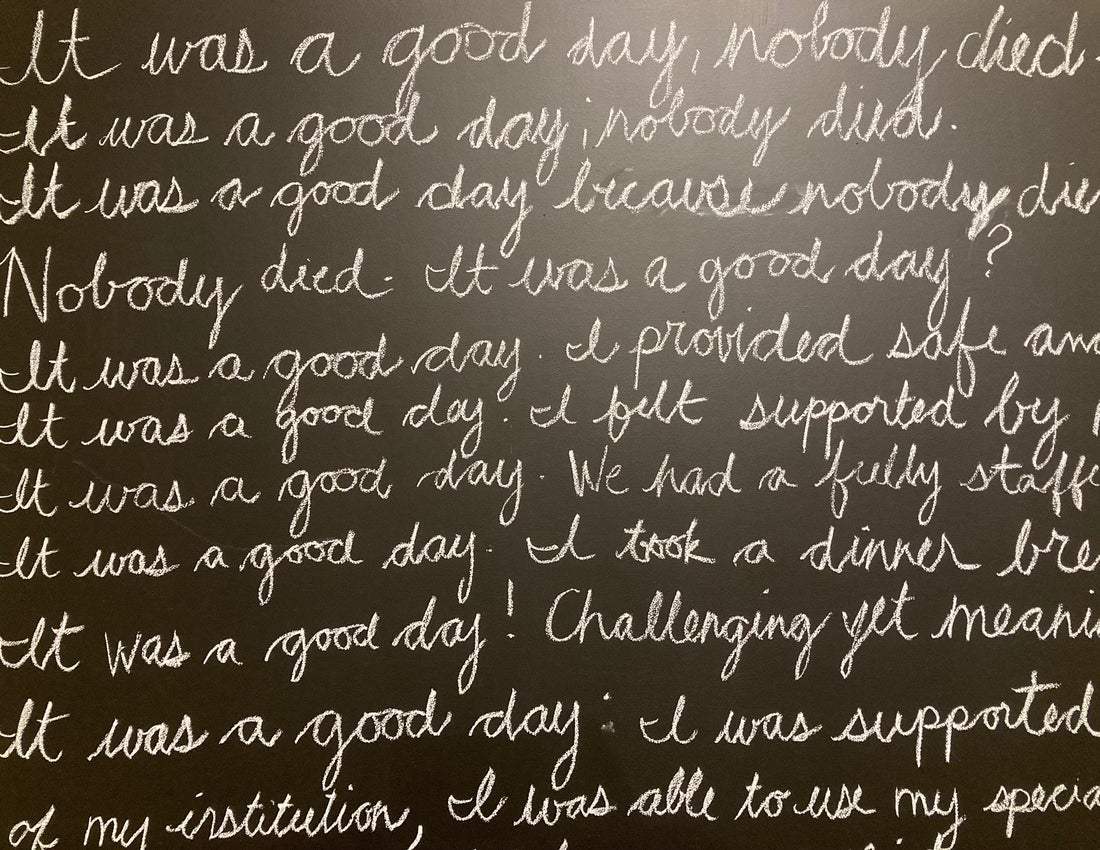 It was a good day, nobody died.
It was a good day; nobody died.
It was a good day because nobody die
Nobody died. It was a good day?
It was a good day. I provided safe and
It was a good day. I felt supported by
It was a good day. We had a fully staffe
It was a good day. I took a dinner bre
It was a good day! Challenging yet meani
It was a good day. I was supported
of my institution, I was able to use my specia